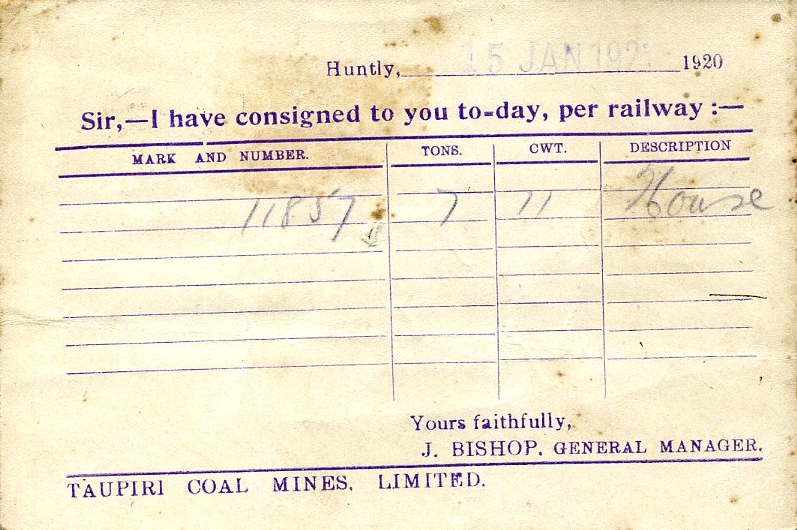 Huntly, 15 JAN 192 1920
Sir,—I have consigned to you to=day, per railway :—
MARK AND NUMBER. TONS. CWT. DESCRIPTION
11857 7 11 House
Yours faithfully,
J. BISHOP. GENERAL MANAGER.
TAUPIRI COAL MINES. LIMITED.